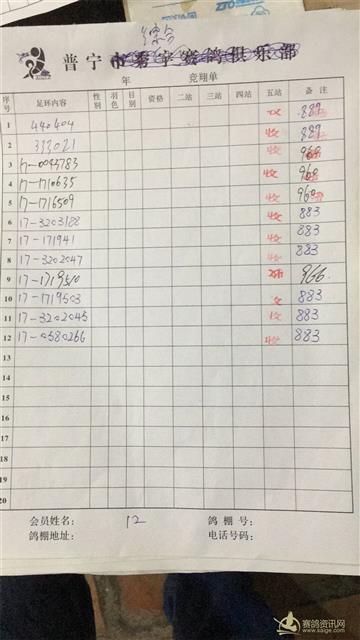 综合
普宁市泰宇赛鸽俱乐部
年 竞翔单
序号 足环内容 性别 羽色 目别 资格 二站 三站 四站 五站 备注
1 440404 收 889
2 333021 收 889
3 17-0095783 收 960
4 17-1710635 收 960
5 17-1716509 收 960
6 17-3203188 收 883
7 17-171941 收 883
8 17-3202047 收 883
9 17-1719510 966
10 17-1719503 883
11 17-3202045 收 883
12 17-0580266 收 883
13
14
15
16
17
18
19
20
会员姓名： 12 鸽棚号：
鸽棚地址： 电话号码：
赛鸽资讯网
www.saige.com